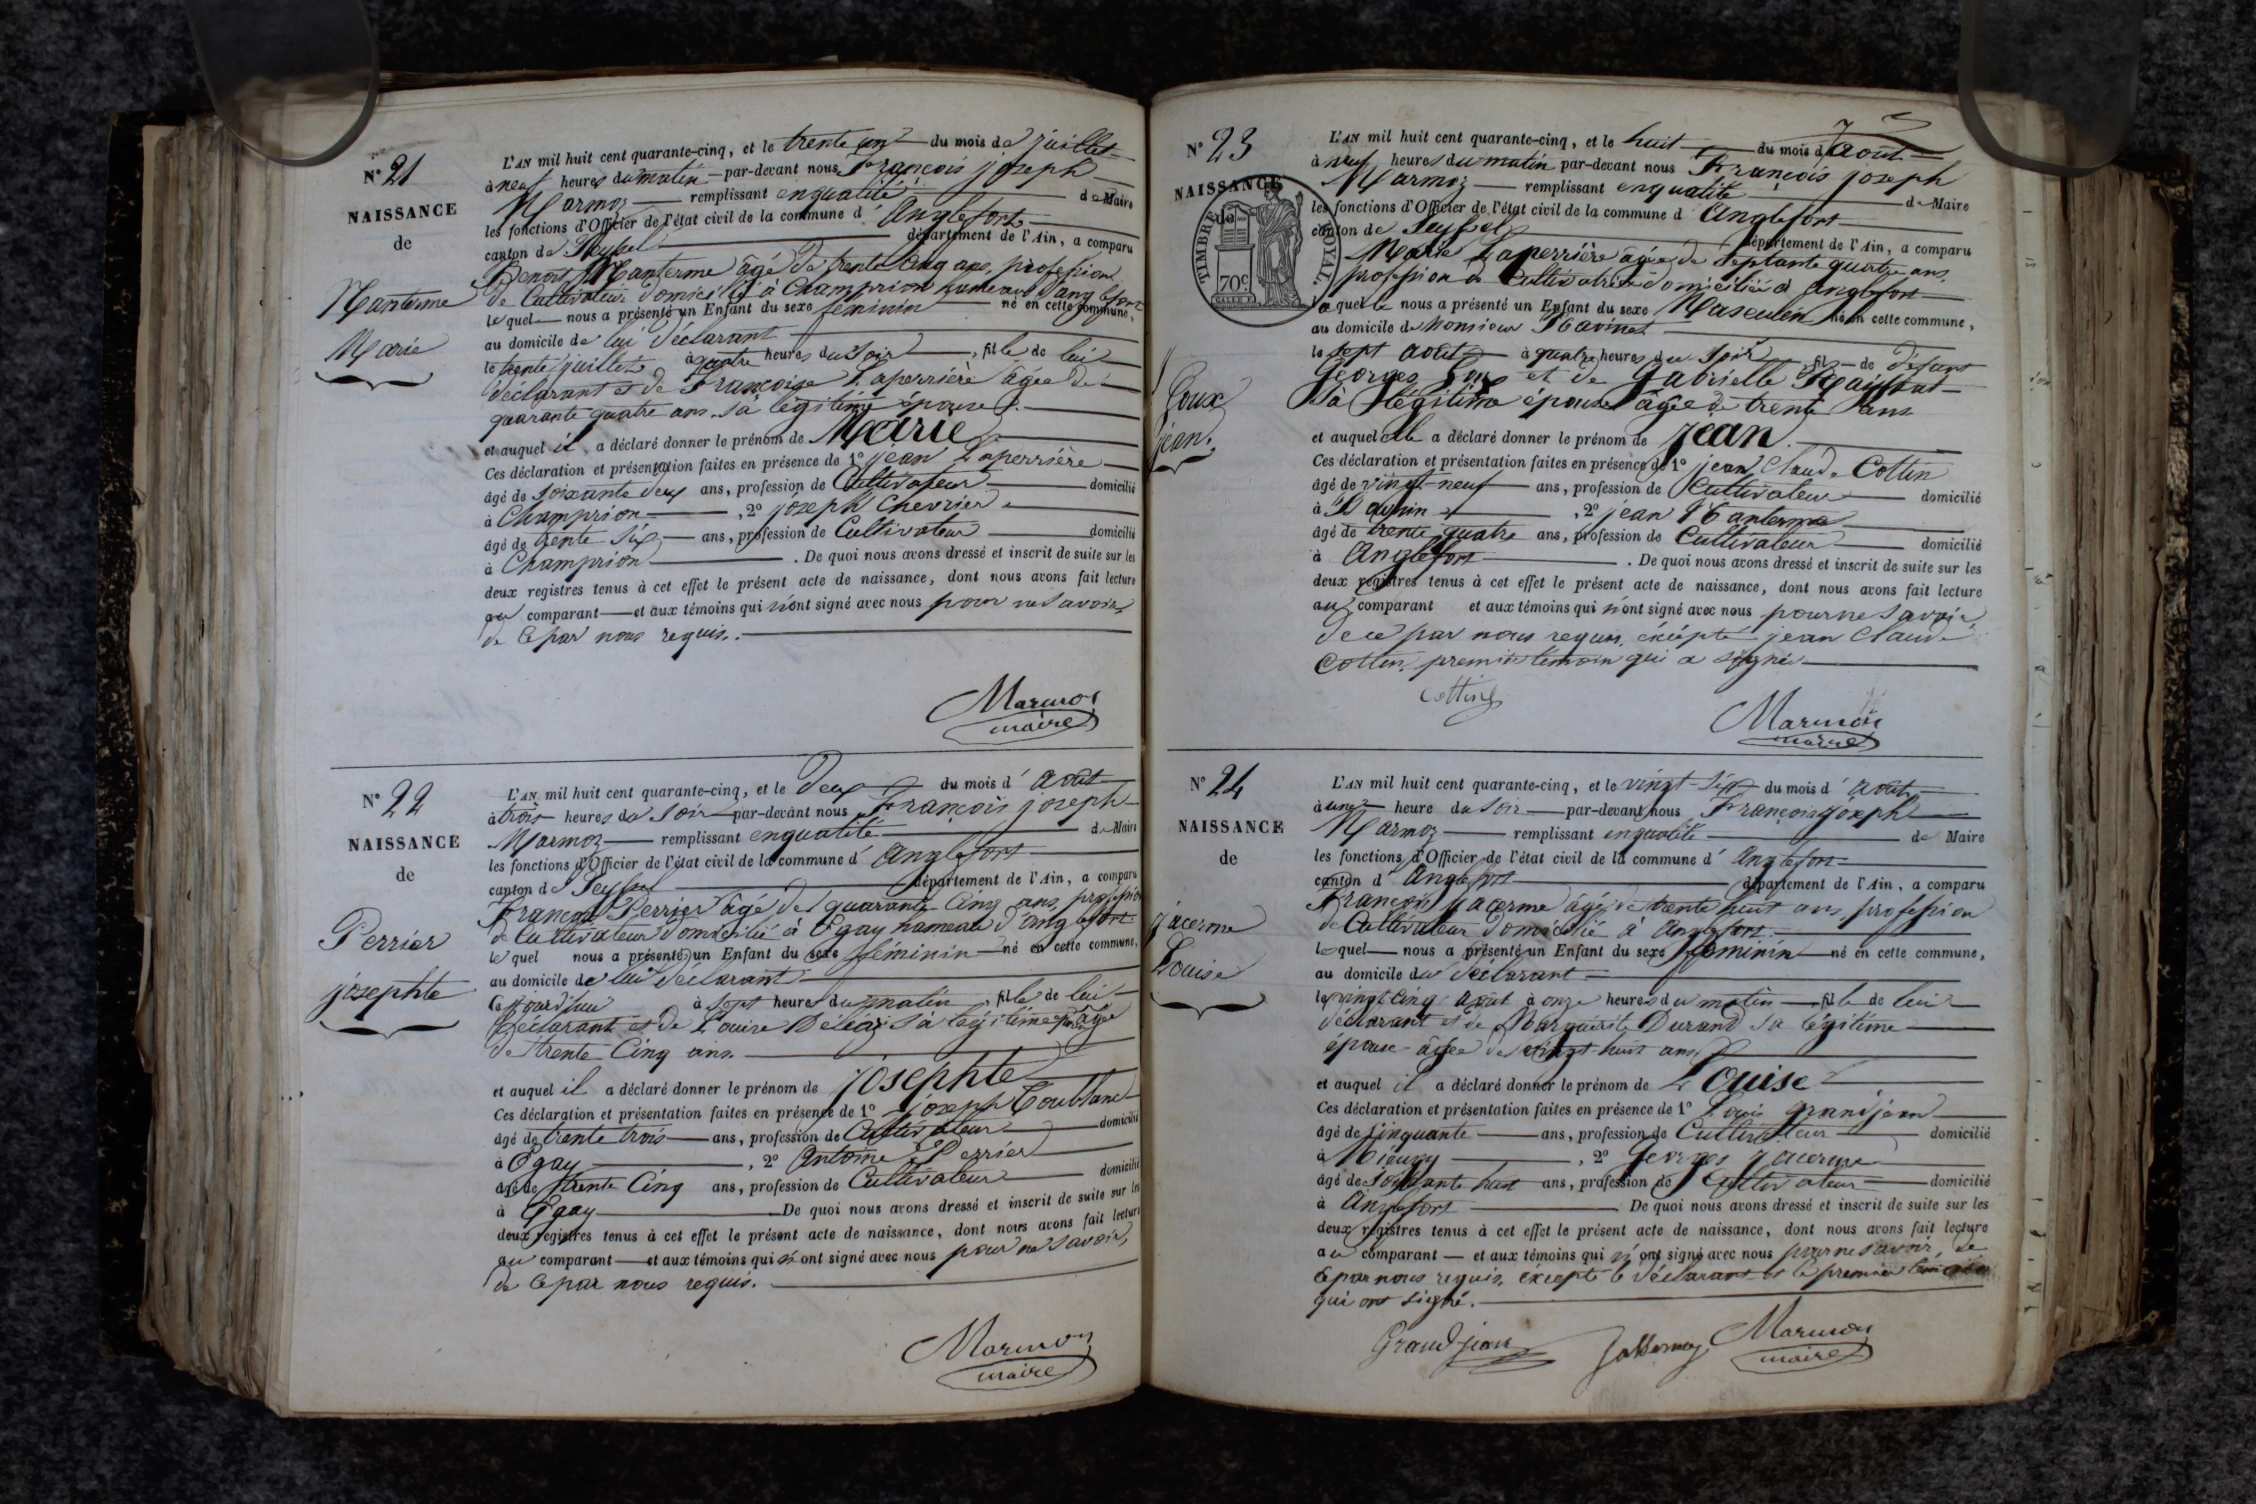 N° 21
NAISSANCE
de
Nanterme
Marie
L'AN mil huit cent quarante-cinq, et le trente un du mois de juillet
à neuf heures du matin par-devant nous François joseph
Marmoz remplissant en qualité de Maire
les fonctions d'Officier de l'état civil de la commune d'Anglefort
canton de Seyssel département de l'Ain, a comparu
Benoit Nanterme âgé de trente cinq ans, profession
de Cultivateur domicilié à Champrion hameau d'anglefort
lequel nous a présenté un Enfant du sexe féminin né en cette commune,
au domicile de lui déclarant
le trente juillet à quatre heures du soir, fille de lui
déclarant et de Françoise Laperrière âgée de
quarante quatre ans. sa légitime épouse
et auquel il a déclaré donner le prénom de Marie
Ces déclaration et présentation faites en présence de 1° jean Laperrière
âgé de soixante deux ans, profession de Cultivateur domicilié
à Champrion, 2° joseph Chevrier
âgé de trente six ans, profession de Cultivateur domicilié
à Champrion. De quoi nous avons dressé et inscrit de suite sur les
deux registres tenus à cet effet le présent acte de naissance, dont nous avons fait lecture
au comparant et aux témoins qui n'ont signé avec nous pour ne savoir
de ce par nous requis.
Marmoz
maire
N° 22
NAISSANCE
de
Perrier
josephte
L'AN mil huit cent quarante-cinq, et le deux du mois d'août
à trois heures du soir par-devant nous François joseph
Marmoz remplissant en qualité de Maire
les fonctions d'Officier de l'état civil de la commune d'anglefort
canton de Seyssel département de l'Ain, a comparu
François Perrier âgé de quarante cinq ans, profession
de Cultivateur domicilié à Egay hameau d'anglefort
lequel nous a présenté un Enfant du sexe féminin né en cette commune,
au domicile de lui déclarant
ce jourd'hui à sept heures du matin, fille de lui
déclarant et de Louise sa légitime épouse âgée
de trente Cinq ans.
et auquel il a déclaré donner le prénom de josephte
Ces déclaration et présentation faites en présence de 1° joseph Coutblanc
âgé de trente trois ans, profession de Cultivateur domicilié
à Egay, 2° Antoine Perrier
âgé de trente Cinq ans, profession de Cultivateur domicilié
à Egay De quoi nous avons dressé et inscrit de suite sur les
deux registres tenus à cet effet le présent acte de naissance, dont nous avons fait lecture
au comparant et aux témoins qui n'ont signé avec nous pour ne savoir,
de ce par nous requis.
Marmoz
maire
N° 23
NAISSANCE
de
TIMBRE ROYAL
70c
Goux
jean.
L'AN mil huit cent quarante-cinq, et le huit du mois d'août
à neuf heures du matin par-devant nous François joseph
Marmoz remplissant en qualité de Maire
les fonctions d'Officier de l'état civil de la commune d'Anglefort
canton de Seyssel département de l'Ain, a comparu
Marie Laperrière âgée de septante quatre ans,
profession de Cultivatrice domiciliée à Anglefort
laquelle nous a présenté un Enfant du sexe Masculin né en cette commune,
au domicile de Monsieur
le sept août à quatre heures du soir fils de défunt
Georges Goux et de Gabrielle
sa légitime épouse âgée de trente ans
et auquel elle a déclaré donner le prénom de jean
Ces déclaration et présentation faites en présence de 1° jean Claude Cottin
âgé de vingt-neuf ans, profession de Cultivateur domicilié
à, 2° jean Nanterme
âgé de trente quatre ans, profession de Cultivateur domicilié
à Anglefort. De quoi nous avons dressé et inscrit de suite sur les
deux registres tenus à cet effet le présent acte de naissance, dont nous avons fait lecture
au comparant et aux témoins qui n'ont signé avec nous pour ne savoir
de ce par nous requis, éxcépté jean Claude
Cottin, premier témoin qui a signé
Cottin
Marmoz
maire
N° 24
NAISSANCE
de
jacerme
Louise
L'AN mil huit cent quarante-cinq, et le vingt-six du mois d'août
à une heure du soir par-devant nous François joseph
Marmoz remplissant en qualité de Maire
les fonctions d'Officier de l'état civil de la commune d'Anglefort
canton d'Anglefort département de l'Ain, a comparu
François jacerme âgé de trente huit ans, profession
de Cultivateur domicilié à Anglefort
lequel nous a présenté un Enfant du sexe féminin né en cette commune,
au domicile du déclarant
le vingt cinq août à onze heures du matin fille de lui
déclarant et de Marguerite Durand sa légitime
épouse âgée de vingt-huit ans
et auquel il a déclaré donner le prénom de Louise
Ces déclaration et présentation faites en présence de 1° Louis grandjean
âgé de cinquante ans, profession de Cultivateur domicilié
à, 2° Georges jacerme
âgé de soixante huit ans, profession de Cultivateur domicilié
à Anglefort De quoi nous avons dressé et inscrit de suite sur les
deux registres tenus à cet effet le présent acte de naissance, dont nous avons fait lecture
au comparant et aux témoins qui n'ont signé avec nous pour ne savoir, de
ce par nous requis, éxcépté le déclarant et le premier témoin
qui ont signé.
Grandjean
Marmoz
maire